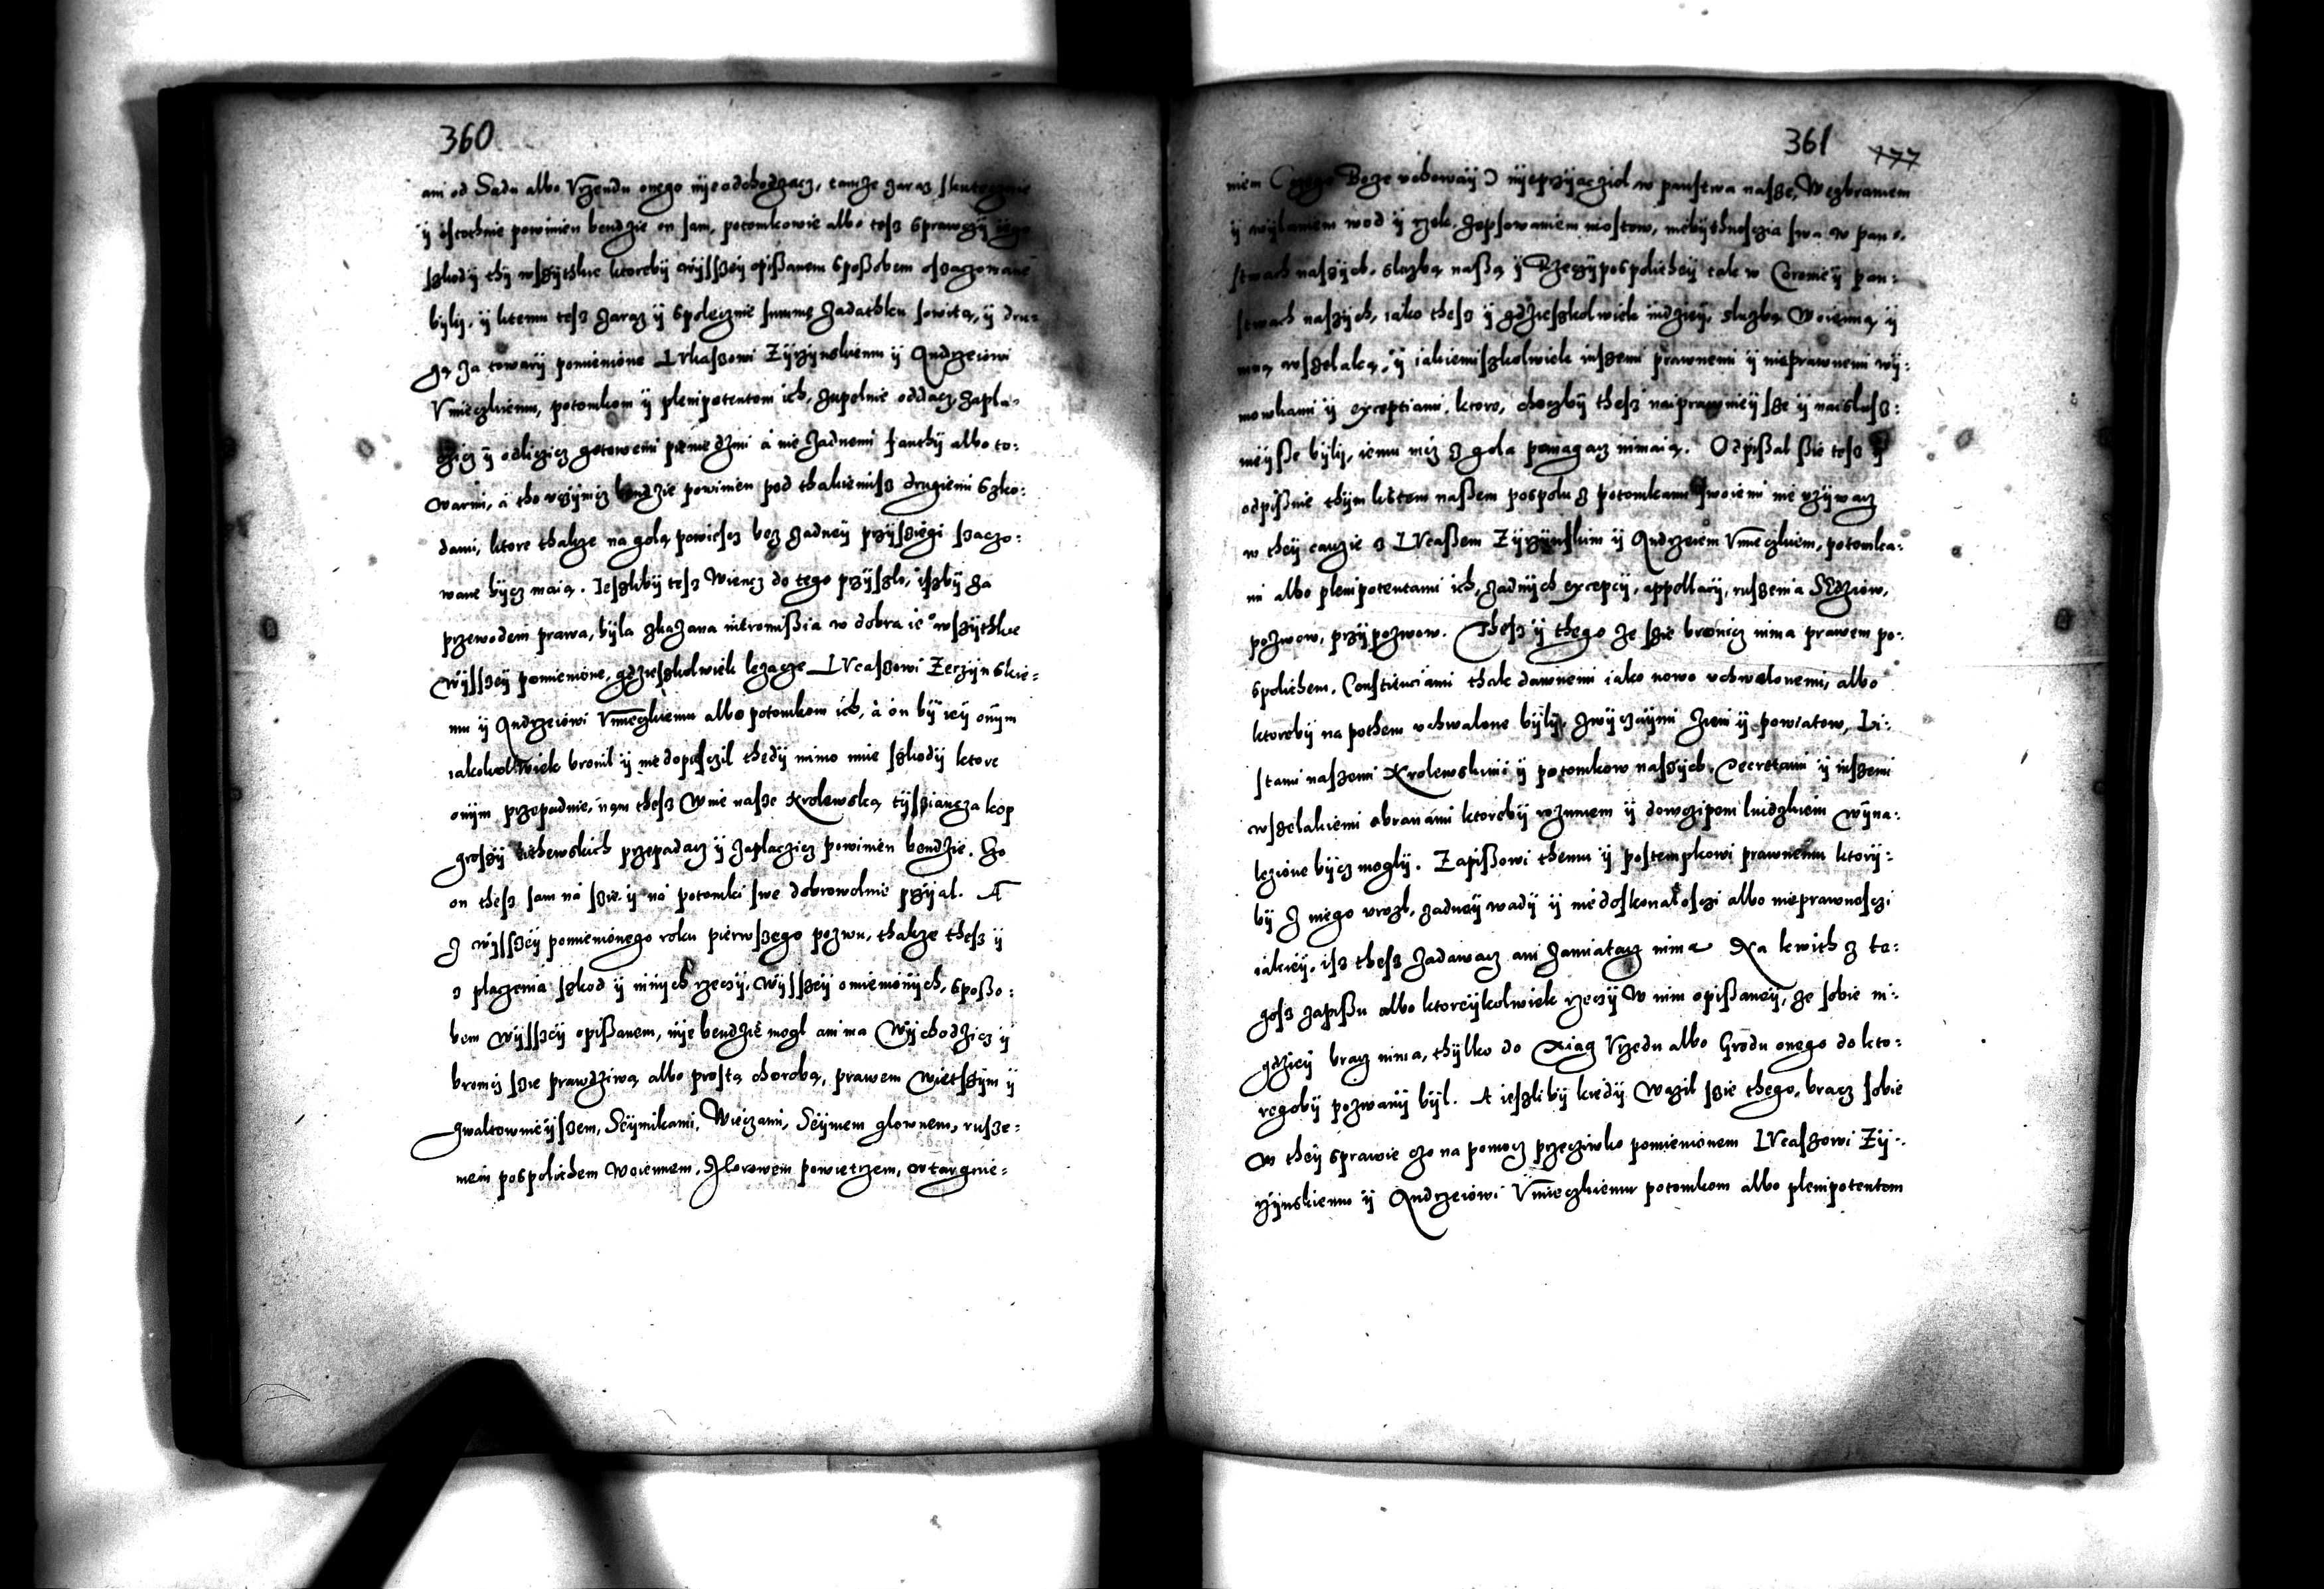 360
ani od Sadu albo Vrzendu onego nÿe odchodzącz, tamże zaraz skuteczznie
ÿ istothnie powinien bendzie on sam, potomkowie albo tesz sprawczÿ iego
szkodÿ thÿ wszÿtskie ktorebÿ wÿsszeÿ opißanem sposßobem osaczowane
bÿlÿ, ÿ ktemu tesz zaraz ÿ spolecznie summę zadathku sowitą, ÿ dru=
gą za towarÿ pomienione LVkaszowi Zÿrzÿnskiemu ÿ Andrzeiowi
Vnieczkiemu, potomkom ÿ plenipotentom ich, zupelnie oddacz, zapla=
czicz ÿ odliczicz gotowemi pieniedzmi a nie żadnemi fanthÿ albo to=
warmi, a tho vczÿnicz bendzie powinien pod thakiemisz drugiemi szko=
dami, ktore thakze na golą powiescz bez żadneÿ przÿsziegi szaczo=
wane bÿcz maią. Ieszlibÿ tesz Wiencz do tego przÿszlo, iszbÿ za
przewodem prawa, bÿla skazana intromissia w dobra ie° wszÿthkie
wÿsszeÿ pomienione, gdzieszkolwiek leżącze LVcaszowi Zerzÿnskie=
mu ÿ Andrzeiowi Vnieczkiemu albo potomkom ich, a on bÿ ieÿ onÿm
iakokolwiek bronil ÿ nie dopusczil thedÿ mimo inne szkodÿ ktore
onÿm przepadnie, nąm thesz w winę nasze Krolewską tÿsziancza kop
groszÿ lithewskich przepadacz ÿ zaplaczicz powinien bendzie. Czo
on thesz sam na szie ÿ na potomki swe dobrowolnie przÿial. A
z wÿsszeÿ pomienionego roku pierwszego pozwu, thakze thesz ÿ
z placzenia szkod ÿ innÿch rzeczÿ, wÿsszeÿ omienionÿch, sposßo=
bem wÿsszeÿ opißanem, nÿe bendzie mogl ani ma Wÿchodzicz ÿ
bronicz szie prawdziwą albo prostą chorobą, prawem Wietszÿm ÿ
gwaltownieÿszem, Seÿmikami, Wieczami, Seÿmem glownem, rusze=
niem pospolithem woiennem, Morowem powietrzem, wtargnie=
361
177
niem (czego Boze vchowaÿ) nÿeprzÿacziol w panstwa nasze, Wezbraniem
ÿ wÿlaniem wod ÿ rzek. Zepsowaniem mostow, niebÿthnosczia swa w pan=
stwach naszÿch, sluzbą naßą ÿ Rzeczÿpospolitheÿ tak w Coronie ÿ pan=
stwach naszÿch, iako thesz ÿ gdzieszkolwiek indzieÿ, sluzbą Woienną ÿ
inną wszelaką, ÿ iakiemiszkolwiek inszemi prawnemi ÿ nieprawnemi wÿ=
mowkami ÿ exceptiami, ktore, choczbÿ thesz naiprawnieÿsze ÿ naislusz=
nieÿße bÿlÿ, iemu nicz z gola pomagacz nimaią. Odpißal ßie tesz ÿ
odpißuie thÿm listem naßem pospolu z potomkami swoiemi nie vżÿwacz
w theÿ cauzie z LVcaßem Zÿrzÿnskim ÿ Andrzeiem Vnieczkiem, potomka=
mi albo plenipotentami ich, żadnÿch excepcÿ, appellacÿ, ruszenia SEdziow,
pozwow, przÿpozwow. Thesz ÿ thego że szie bronicz nima prawem po=
spolithem, Constituciami thak dawnemi iako nowo vchwalonemi, albo
ktorebÿ na pothem vchwalone bÿlÿ, zwÿczaÿmi ziem ÿ powiatow, Li=
stami naszemi Krolewskimi ÿ potomkow naszÿch, Decretami ÿ inszemi
wszelakiemi obranami ktorebÿ rozumem ÿ dowczipem luidzkiem wÿna=
lezione bÿcz moglÿ. Zapißowi themu ÿ postempkowi prawnemu ktorÿ=
bÿ z niego vrosl, zadneÿ wadÿ ÿ niedoskonalosczi albo nieprawnosczi
iakieÿ, isz thesz zadawacz ani zamiatacz nima. Na kwith z te=
gosz zapißu albo ktoreÿkolwiek rzeczÿ w nim opißaneÿ, że sobie ni=
gdzieÿ bracz nima, thÿlko do Xiąg Vrzędu albo Grodu onego do kto=
regobÿ pozwanÿ bÿl. A ieszlibÿ kiedÿ wazil szie thego, bracz sobie
w theÿ sprawie czo na pomocz przecziwko pomienionem LVcaszowi Zÿ=
rzÿnskiemu ÿ Andrzeiowi Vnieczkiemu potomkom albo plenipotentom